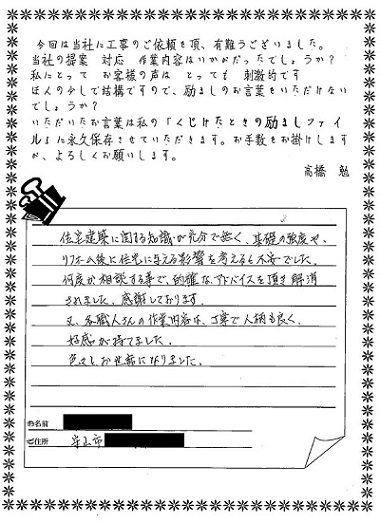 今回は当社に工事のご依頼を頂、有難うございました。
当社の提案　対応　作業内容はいかがだったでしょうか？
私にとって　お客様の声は　とっても　刺激的です
ほんの少しで結構ですので、励ましのお言葉をいただけない
でしょうか？
いただいたお言葉は私の「くじけたときの励ましファイ
ル」に永久保存させていただきます。お手数をお掛けします
が、よろしくお願いします。
高橋　勉
住宅建築に関する知識が充分で無く、基礎の強度や、
リフォーム後に住宅に与える影響を考えると不安でした。
何度か相談する事で、的確なアドバイスを頂き解消
されました。感謝しております。
又、各職人さんの作業内容は、丁寧で人柄も良く、
好感が持てました。
色々と、お世話になりました。
お名前
ご住所